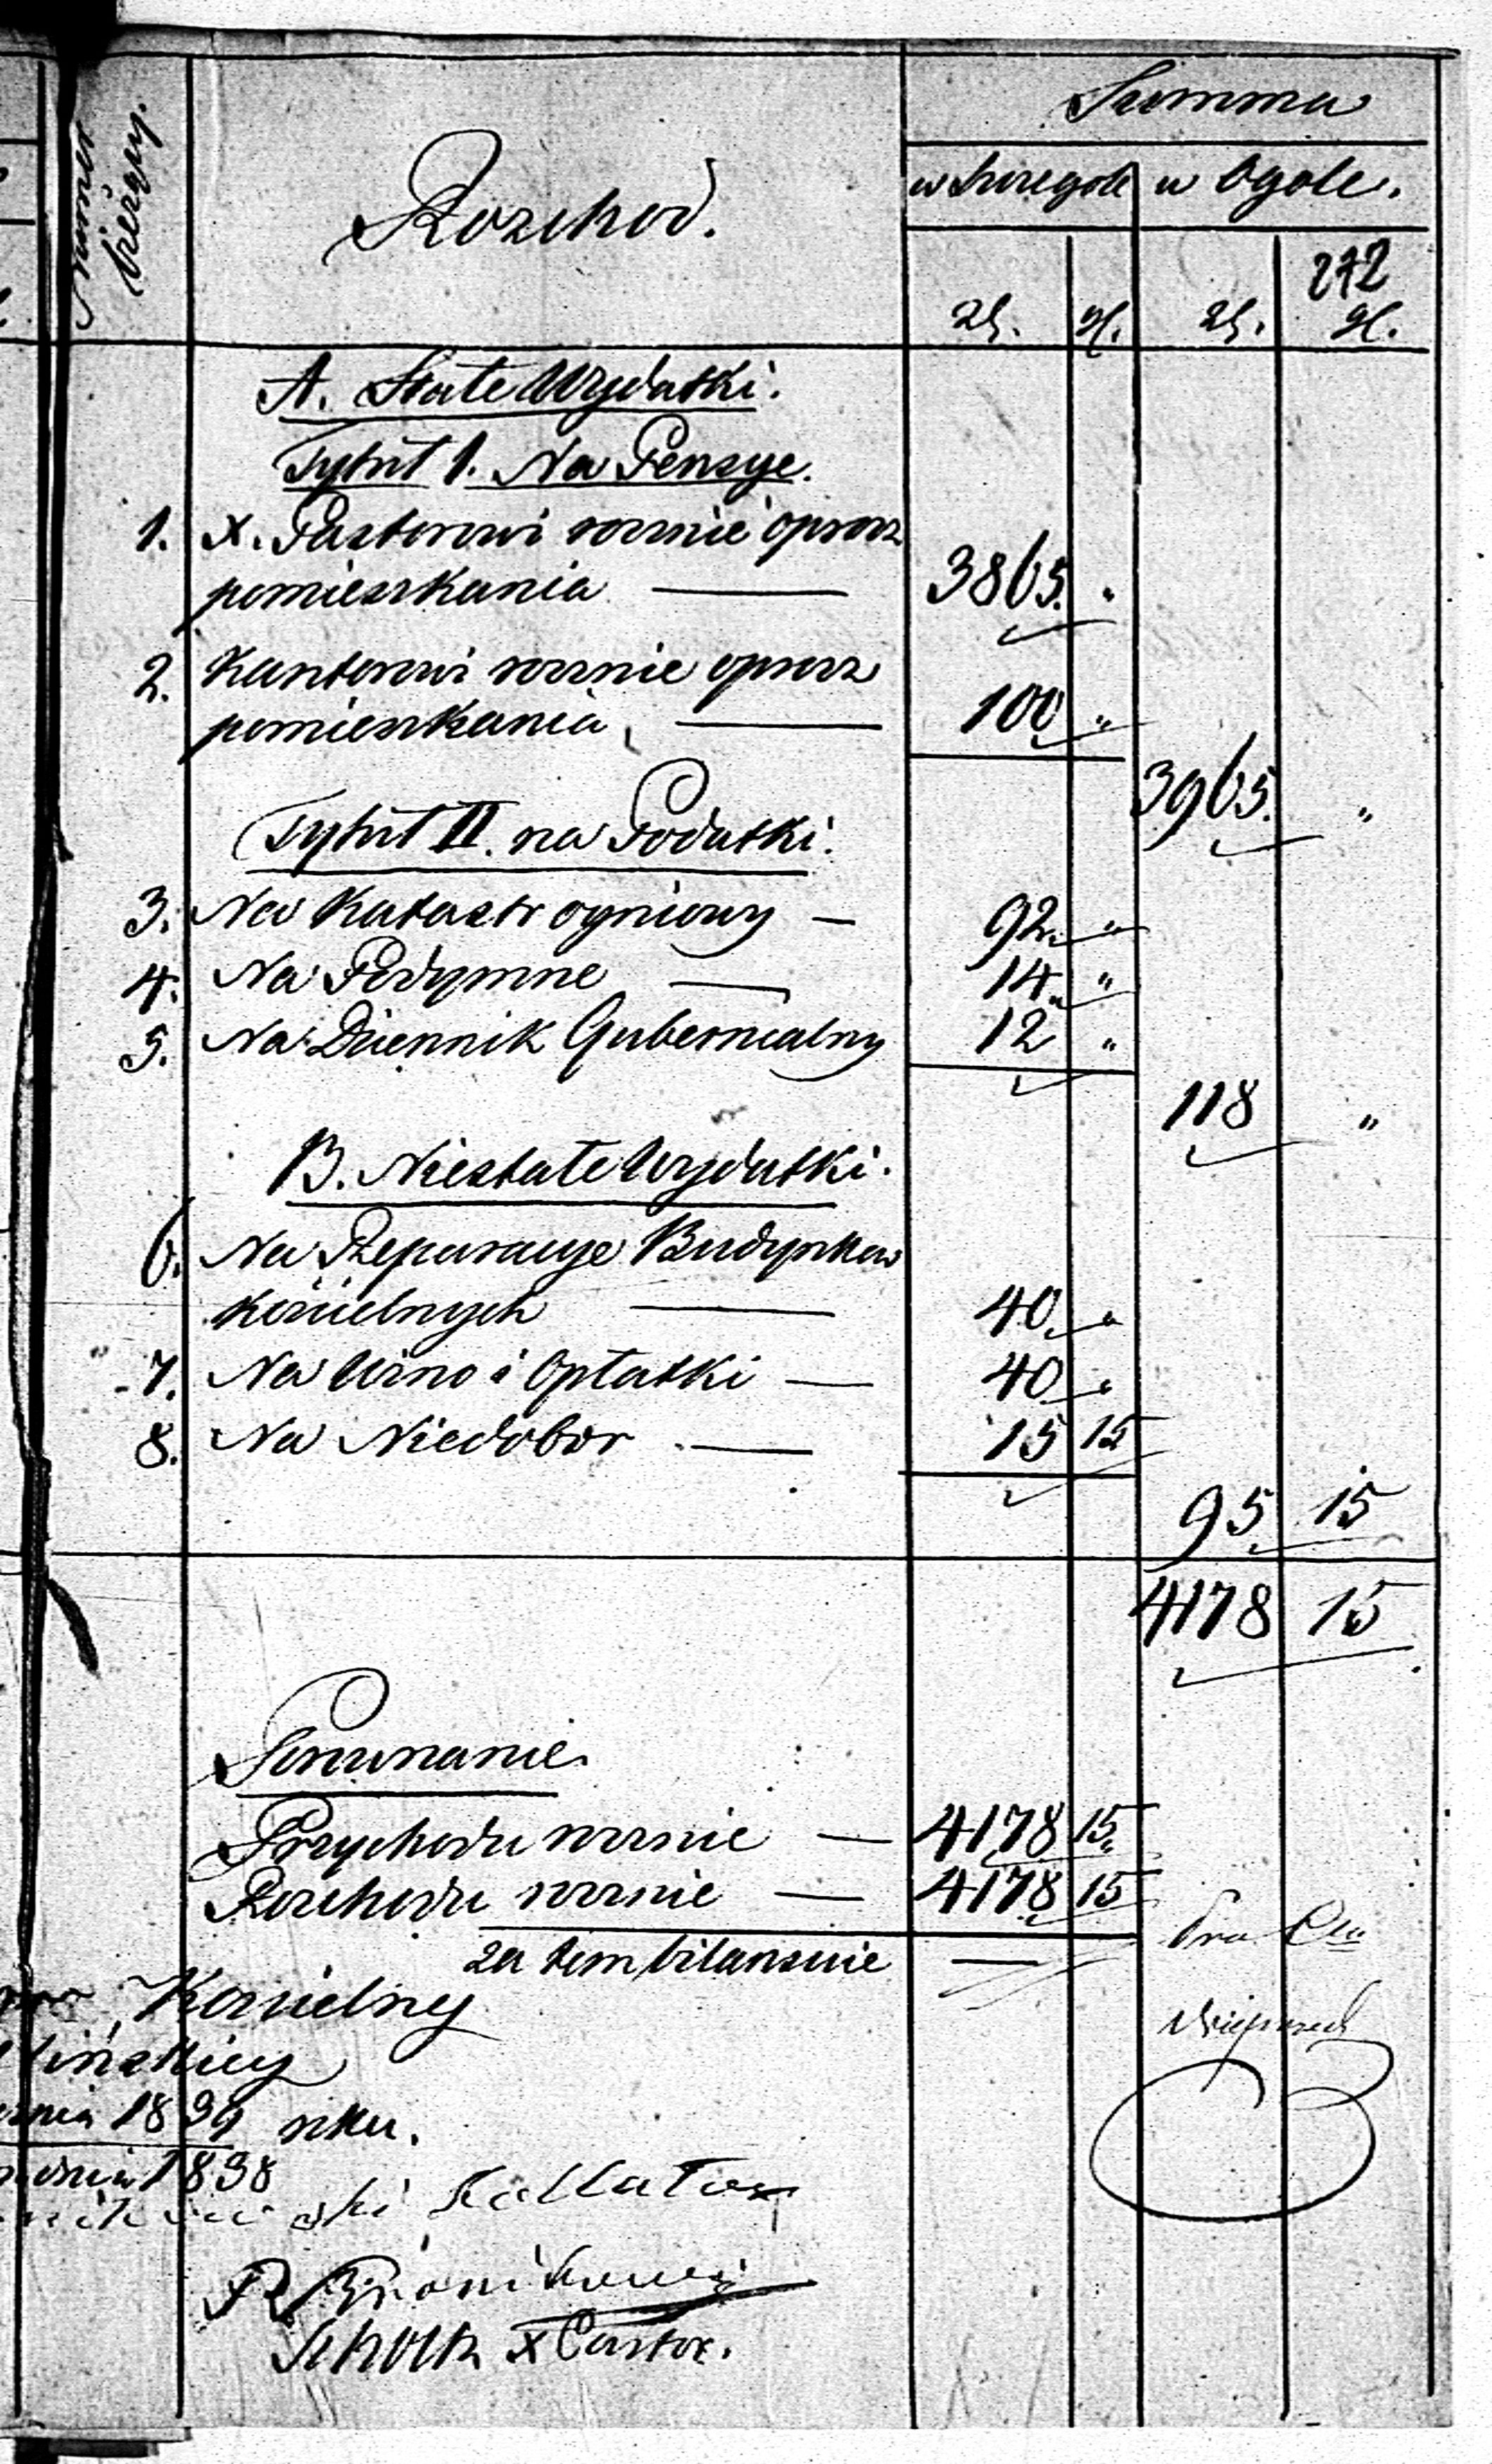 Numer bieżący.
Rozchod.
Summa
w szczegole w Ogole.
272
Zł. gr. Zł. gr.
A. Stałe Wydatki.
Tytuł 1. Na Pensye.
1. X. Pastorowi rocznie oprocz
pomieszkania — 3865. "
2. Kantorowi rocznie oprocz
pomieszkania, — 100 "
3965. "
Tytuł II. na Podatki.
3. Na Katastr ogniowy — 92. "
4. Na Podymne — 14. "
5. Na Dziennik Gubernialny 12 "
118 "
B. Niestałe Wydatki.
6. Na Reparacye Budynkow
Koscielnych — 40. "
7. Na Wino i Opłatki — 40 "
8. Na Niedobor — 15 15
95 15
4178 15
Porownanie.
Przychodu rocznie — 4178 15.
Rozchodu rocznie — 4178 15
za tem bilansuie —
Koscielny
1839 roku.
1838
Kollator
R Bronikowski
Scholtz X Pastor.